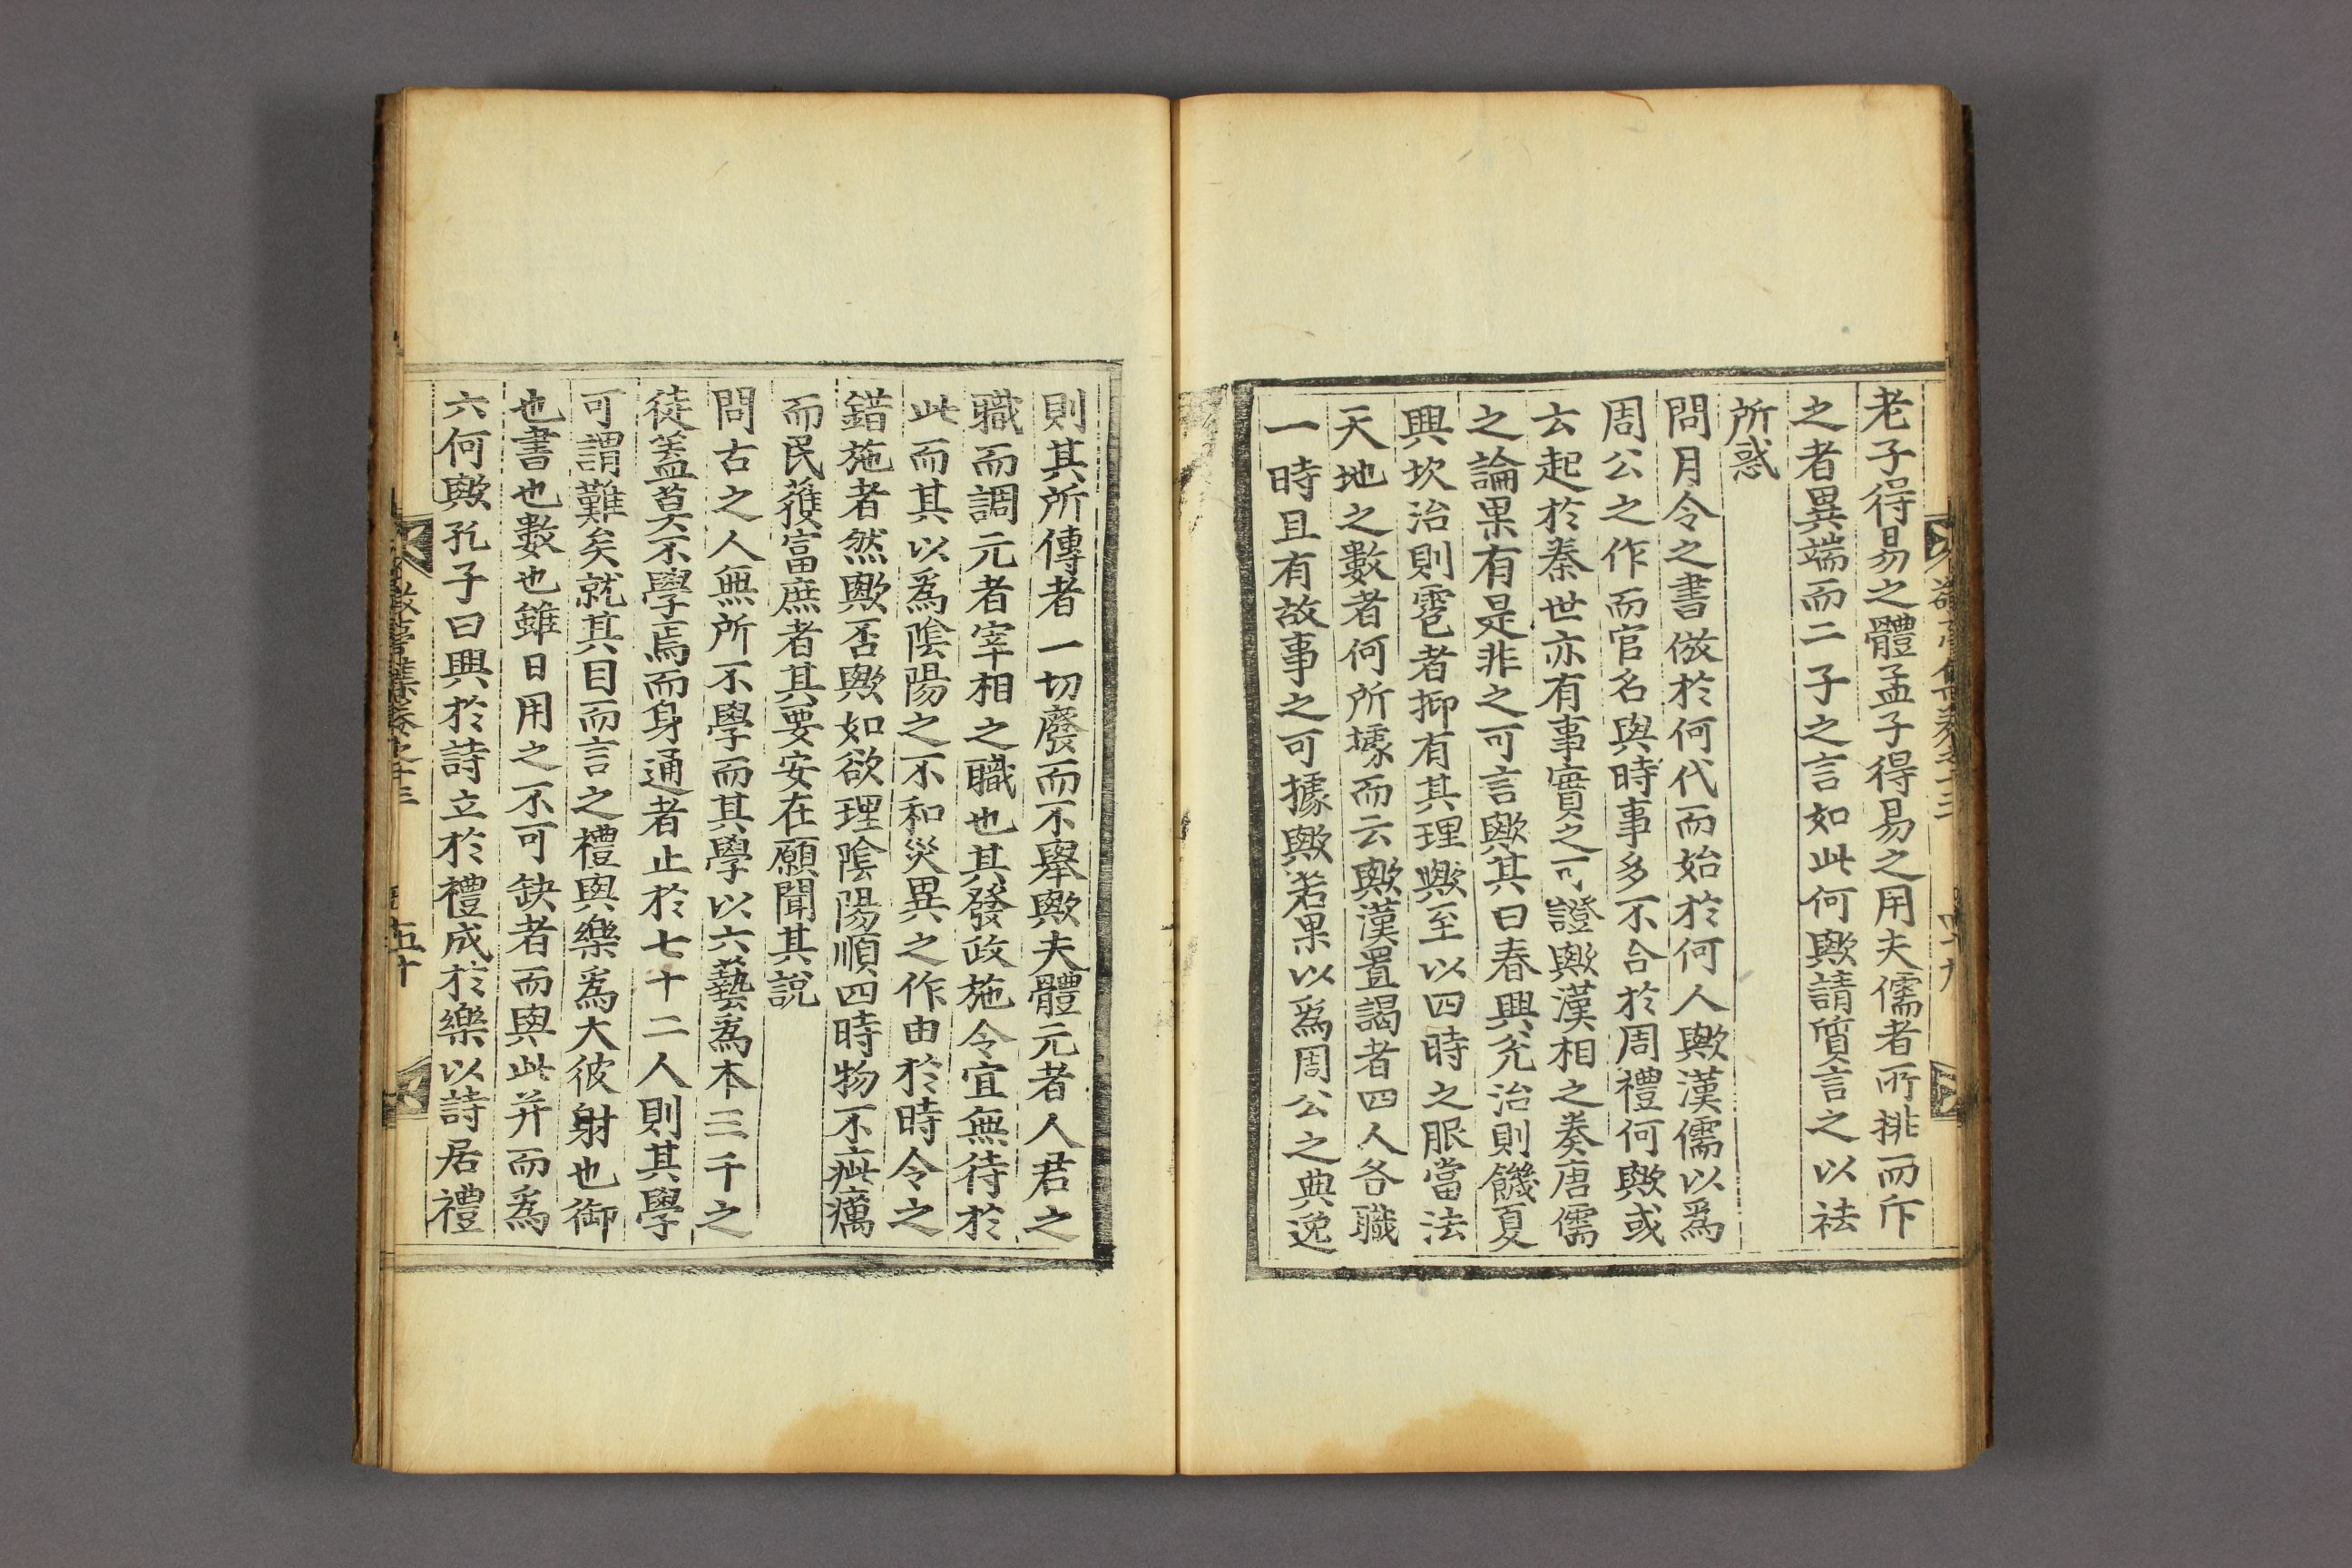 老子得易之體孟子得易之用夫儒者所排而斥
之者異端而二子之言如此何歟請質言之以祛
所惑
問月令之書倣於何代而始於何人歟漢儒以爲
周公之作而官名與時事多不合於周禮何歟或
云起於秦世亦有事實之可證歟漢相之奏唐儒
之論果有是非之可言歟其曰春興兊治則饑夏
興坎治則雹者抑有其理歟至以四時之服當法
天地之數者何所據而云歟漢置謁者四人各職
一時且有故事之可據歟若果以爲周公之典逸
則其所傳者一切廢而不擧歟夫體元者人君之
職而調元者宰相之職也其發政施令宜無待於
此而其以爲陰陽之不和災異之作由於時令之
錯施者然歟否歟如欲理陰陽順四時物不疵癘
而民蒦富庶者其要安在願聞其說
問古之人無所不學而其學以六藝爲本三千之
徒盖莫不學焉而身通者止於七十二人則其學
可謂難矣就其目而言之禮與樂爲大彼射也御
也書也數也雖日用之不可缺者而與此并而爲
六何歟孔子曰興於詩立於禮成於樂以詩居禮
集卷之十三 五十